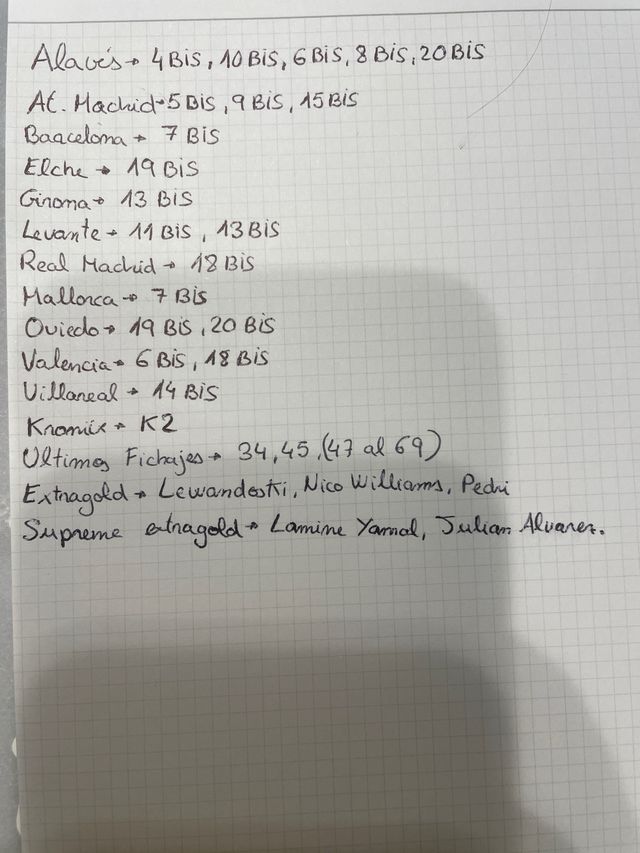 Alavés → 4 Bis, 10 Bis, 6 Bis, 8 Bis, 20 Bis
At. Madrid → 5 Bis, 9 Bis, 15 Bis
Barcelona → 7 Bis
Elche → 19 Bis
Girona → 13 Bis
Levante → 11 Bis, 13 Bis
Real Madrid → 18 Bis
Mallorca → 7 Bis
Oviedo → 19 Bis, 20 Bis
Valencia → 6 Bis, 18 Bis
Villareal → 14 Bis
Kromix → K2
Ultimos Fichajes → 34, 45, (47 al 69)
Extragold → Lewandoski, Nico Williams, Pedri
Supreme extragold → Lamine Yamal, Julian Alvarez.